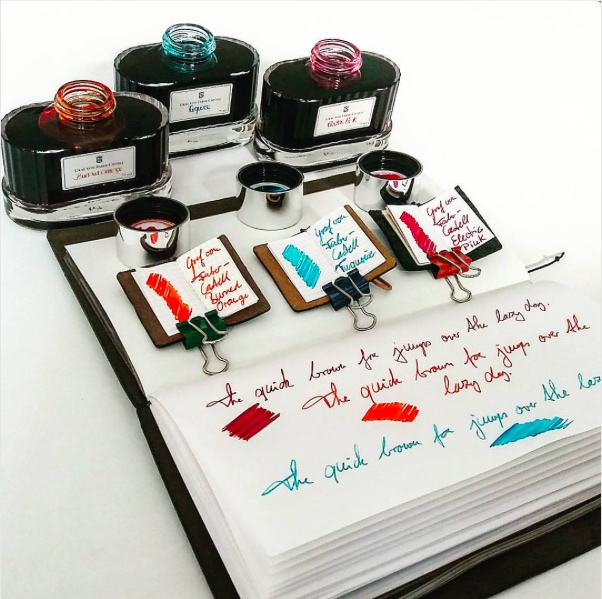 GRAF VON FABER-CASTELL
Burned Orange
GRAF VON FABER-CASTELL
GRAF VON FABER-CASTELL
Electric Pink
Graf von
Faber-
Castell
Burned
Orange
Graf von
Faber-
Castell
Turquoise
Graf von
Faber-
Castell
Electric
Pink
The quick brown fox jumps over the lazy dog.
The quick brown fox jumps over the
lazy dog.
The quick brown fox jumps over the laz